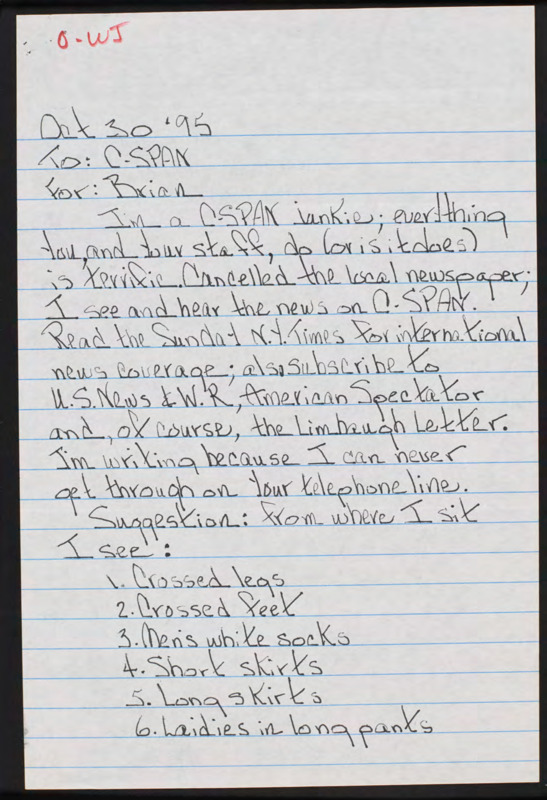 O-WJ
Oct 30 '95
To: C-SPAN
For: Brian
I'm a C-SPAN junkie; everything
you, and your staff, do (or is it does)
is terrific. Cancelled the local newspaper;
I see and hear the news on C-SPAN.
Read the Sunday N.Y. Times for international
news coverage; also subscribe to
U.S. News & W.R, American Spectator
and, of course, the Limbaugh Letter.
I'm writing because I can never
get through on your telephone line.
Suggestion: from where I sit
I see:
1. Crossed legs
2. Crossed feet
3. Men's white socks
4. Short skirts
5. Long skirts
6. Laidies in long pants